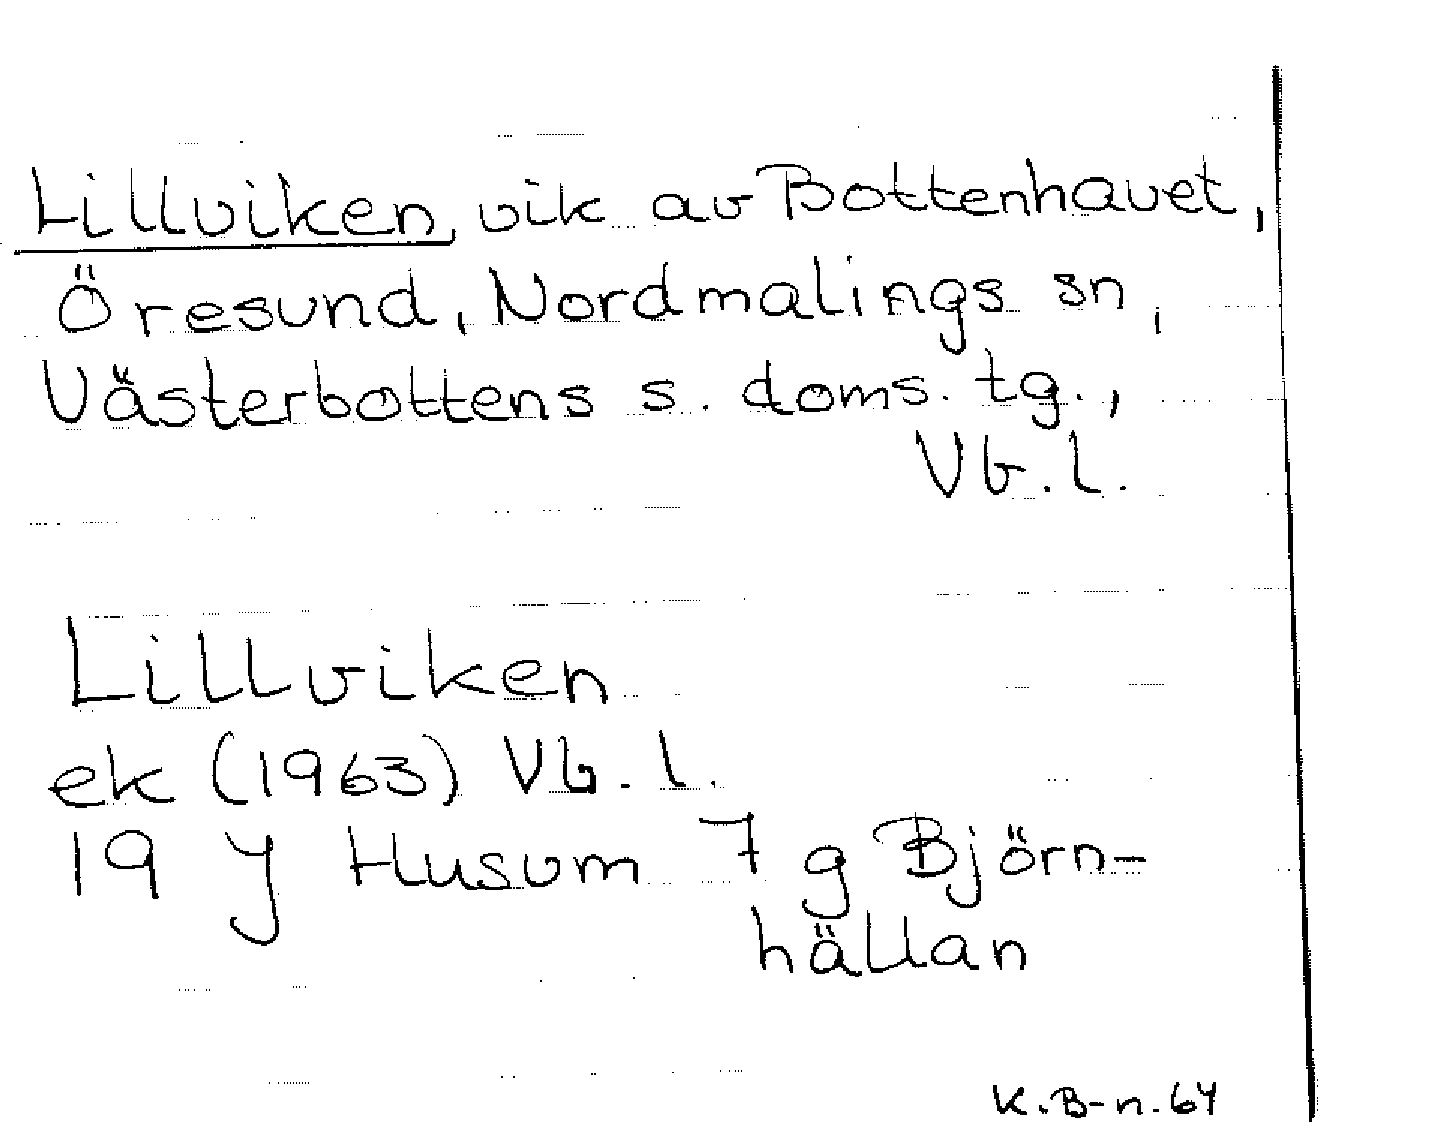 Lillviken, vik av Bottenhavet,
Öresund, Nordmalings sn,
Västerbottens s. doms. tg.,
Vb. l.
Lillviken
ek (1963) Vb. l.
19 J Husum 7 g Björn-
hällan
K.B-n. 64